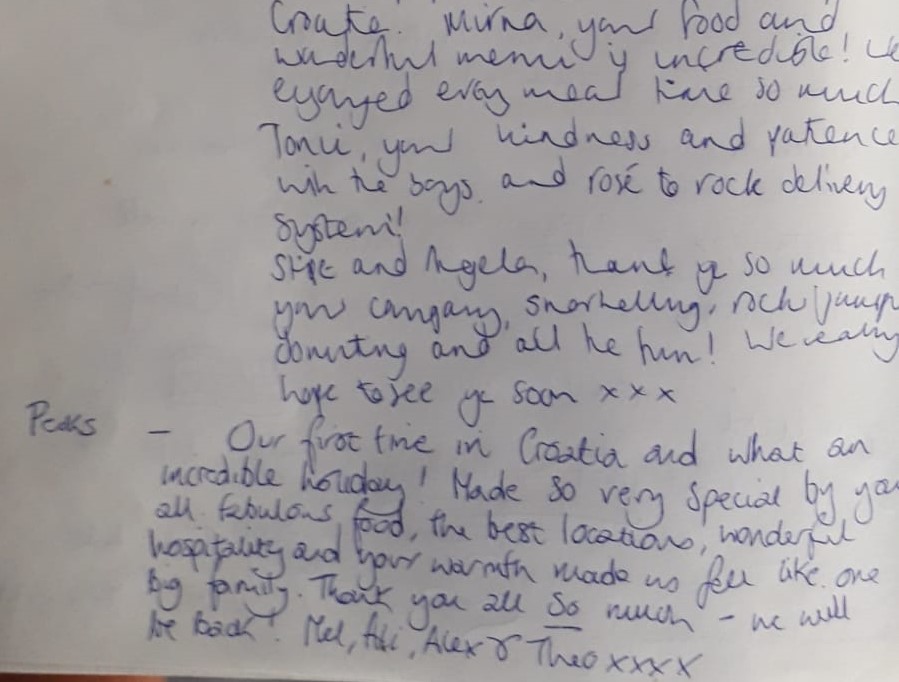 Croatia. Mirna, your food and
wonderful menu is incredible! We
enjoyed every meal time so much
Tonci, your kindness and patience
with the boys. and rosé to rock delivery
system!
Stipe and Angela, thank ye so much
your company, snorkelling, rock jump
donuting and all the fun! We really
hope to see ye soon x x x
Peaks - Our first time in Croatia and what an
incredible holiday! Made so very special by you
all. fabulous food, the best locations, wonderful
hospitality and your warmth made us feel like one
big family. Thank you all so much - we will
be back! Mel, Ali, Alex & Theo xxxx